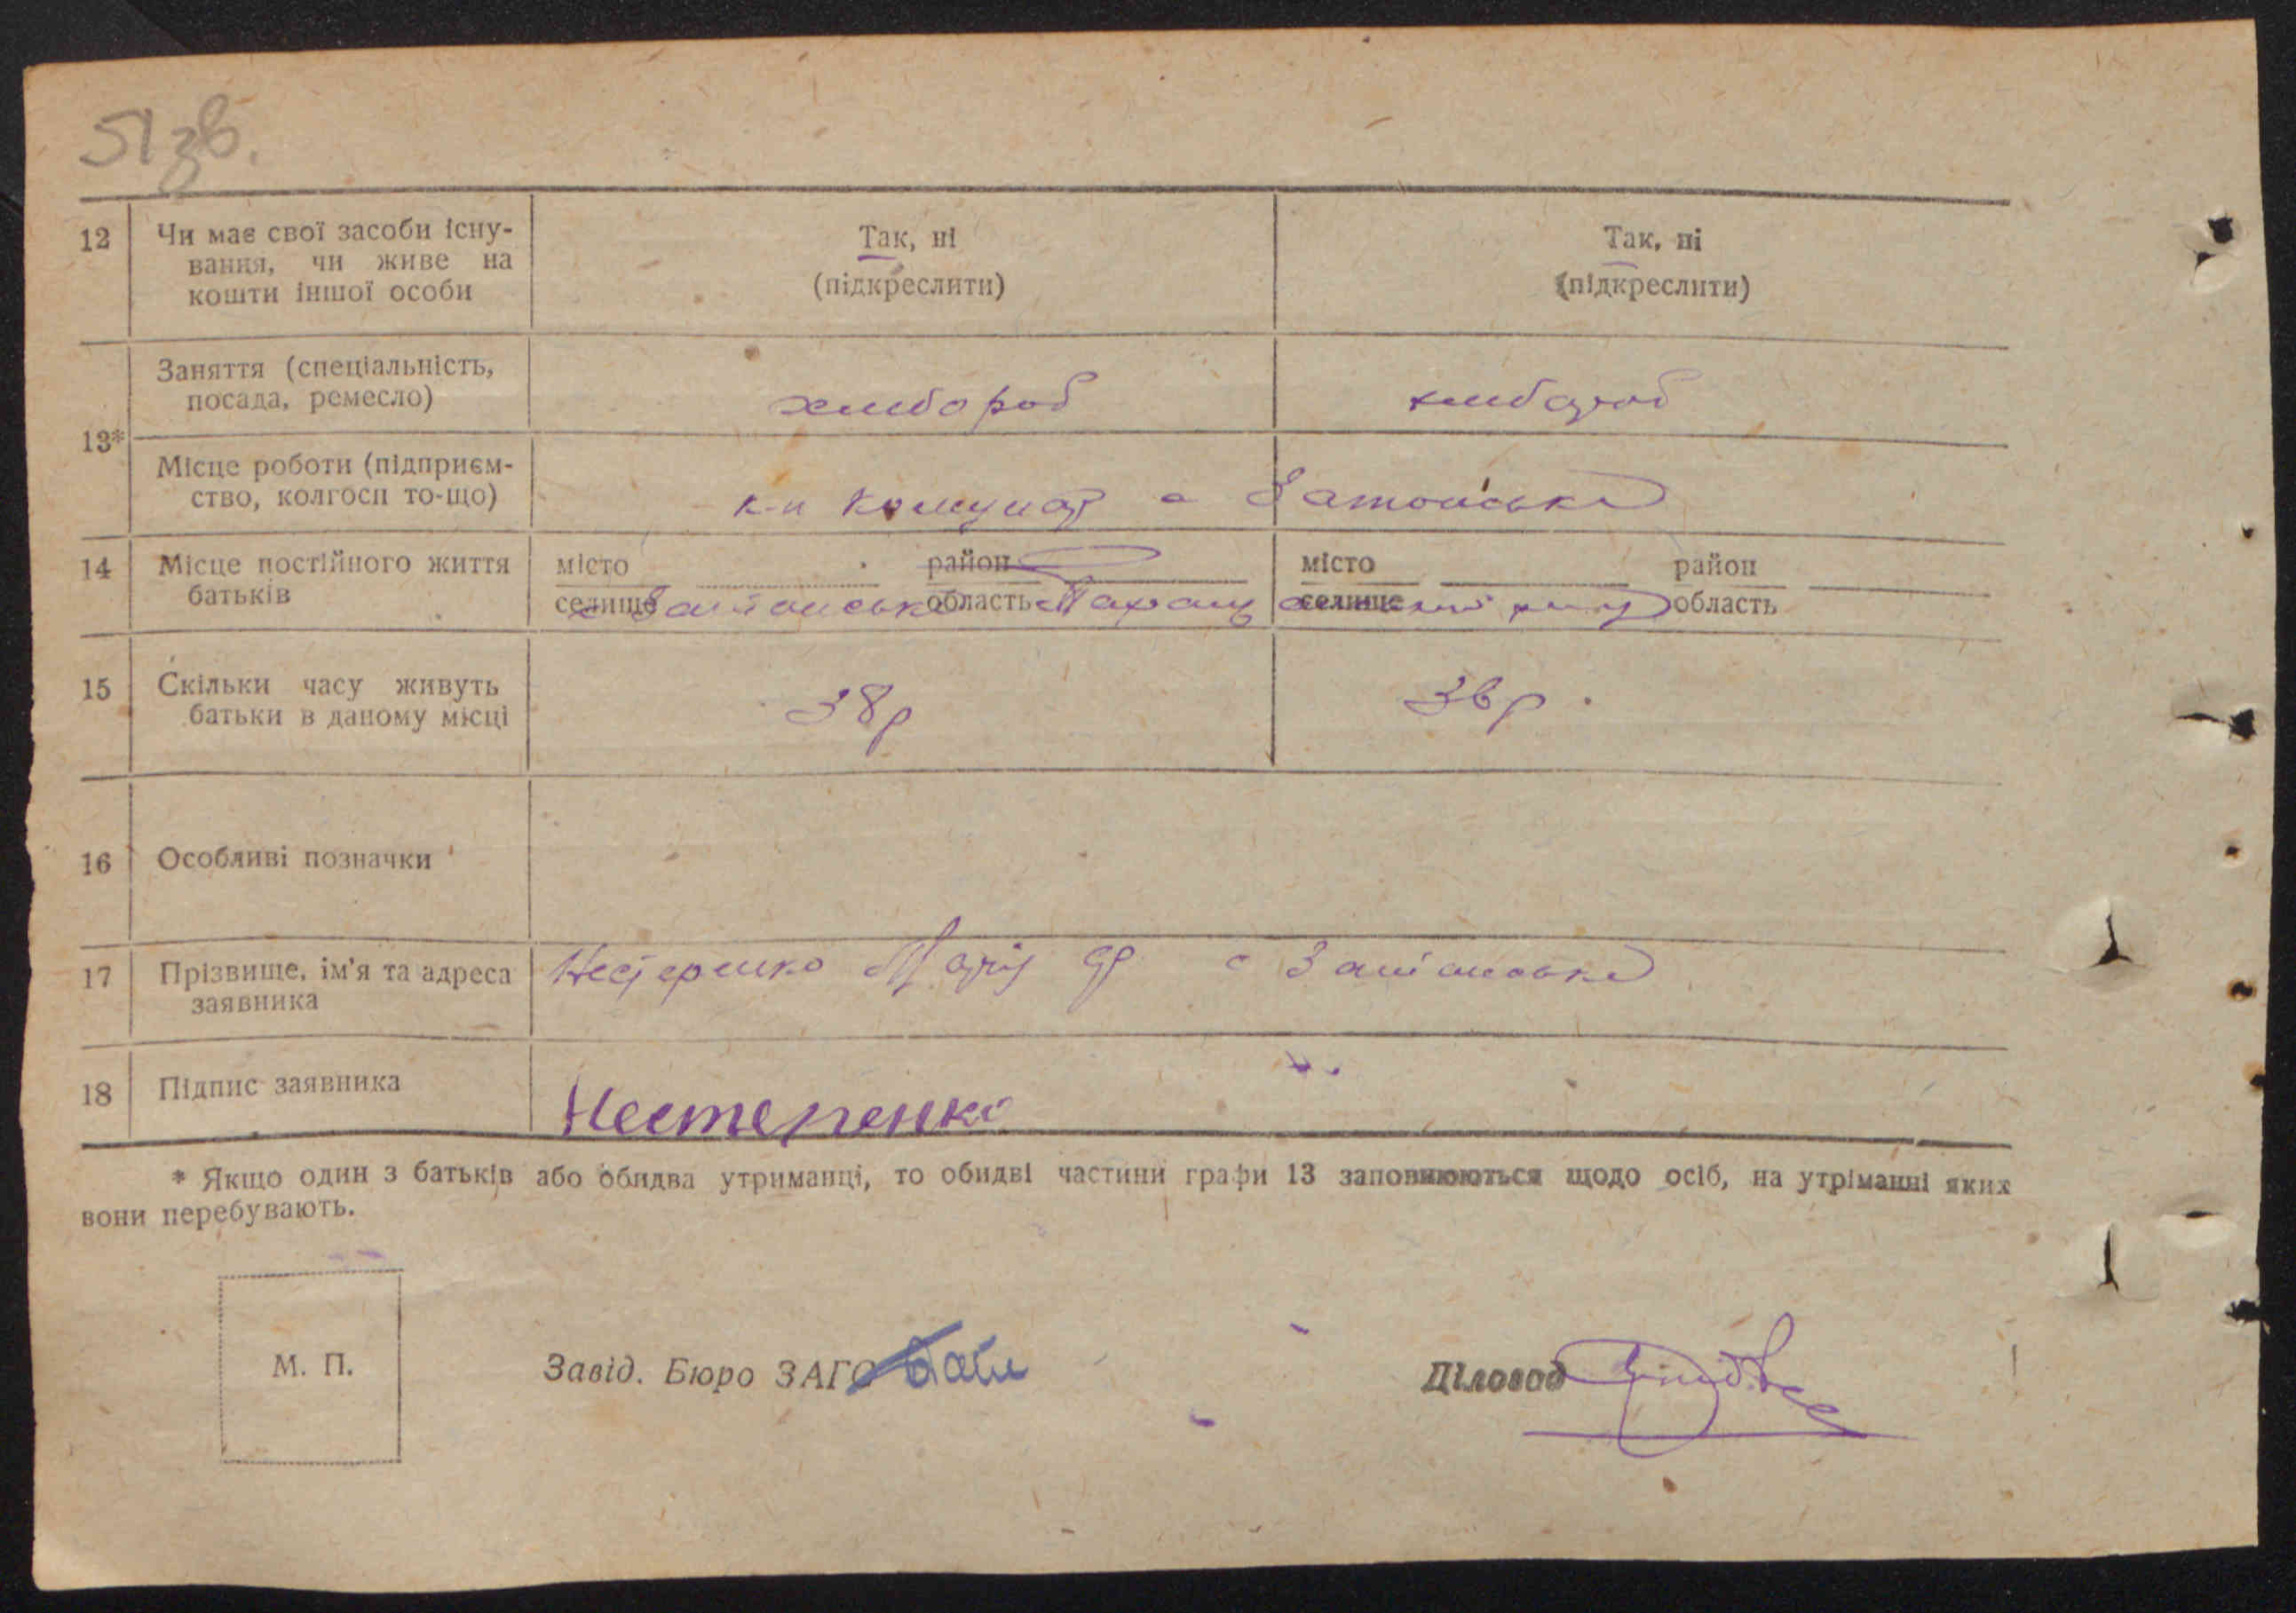 51 зв.
12 Чи має свої засоби існу-
вання, чи живе на
кошти іншої особи
Так, ні
(підкреслити)
Так, ні
(підкреслити)
13*
Заняття (спеціальність,
посада, ремесло)
хлибороб
хлибороб
Місце роботи (підприєм-
ство, колгосп то-що)
к-п Комунар с Затонське
14 Місце постійного життя
батьків
місто район
селище область
с Затонське
місто район
селище область
15 Скільки часу живуть
батьки в даному місці
38р
36р.
16 Особливі позначки
17 Прізвище, ім'я та адреса
заявника
Нестеренко Марія с Затонське
18 Підпис заявника
Нестеренко
* Якщо один з батьків або обидва утриманці, то обидві частини графи 13 заповнюються щодо осіб, на утріманні яких
вони перебувають.
М. П.
Завід. Бюро ЗАГС
Діловод